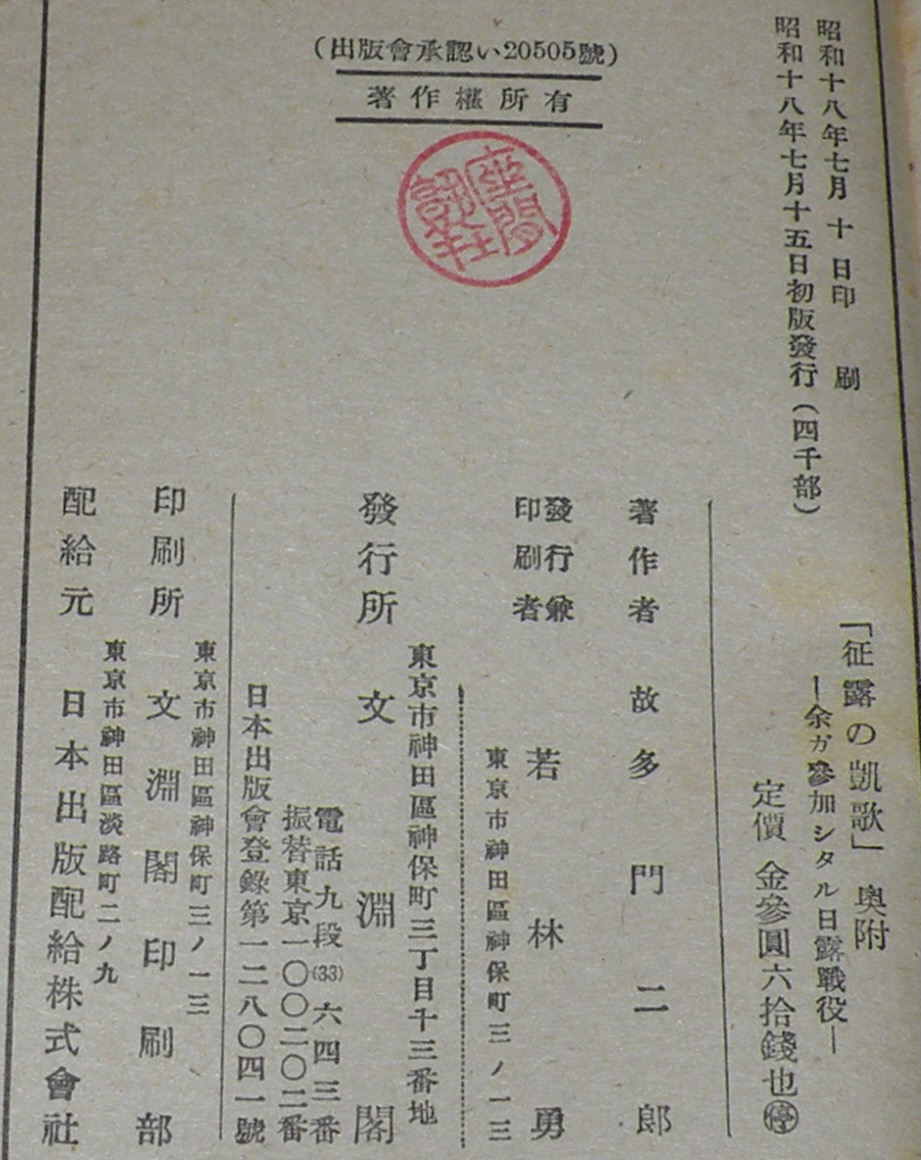 (出版會承認い20505號)
著作權所有
昭和十八年七月 十 日印 刷
昭和十八年七月十五日初版發行(四千部)
「征露の凱歌」 奥附
―余ガ參加シタル日露戰役―
定價 金參圓六拾錢也㊡
著作者 故多門二郎
發行兼
印刷者 若林勇
東京市神田區神保町三ノ一三
東京市神田區神保町三丁目十三番地
發行所 文淵閣
電話九段(33)六四三番
振替東京一〇〇二〇二番
日本出版會登錄第一二八〇四一號
東京市神田區神保町三ノ一三
印刷所 文淵閣印刷部
東京市神田區淡路町二ノ九
配給元 日本出版配給株式會社